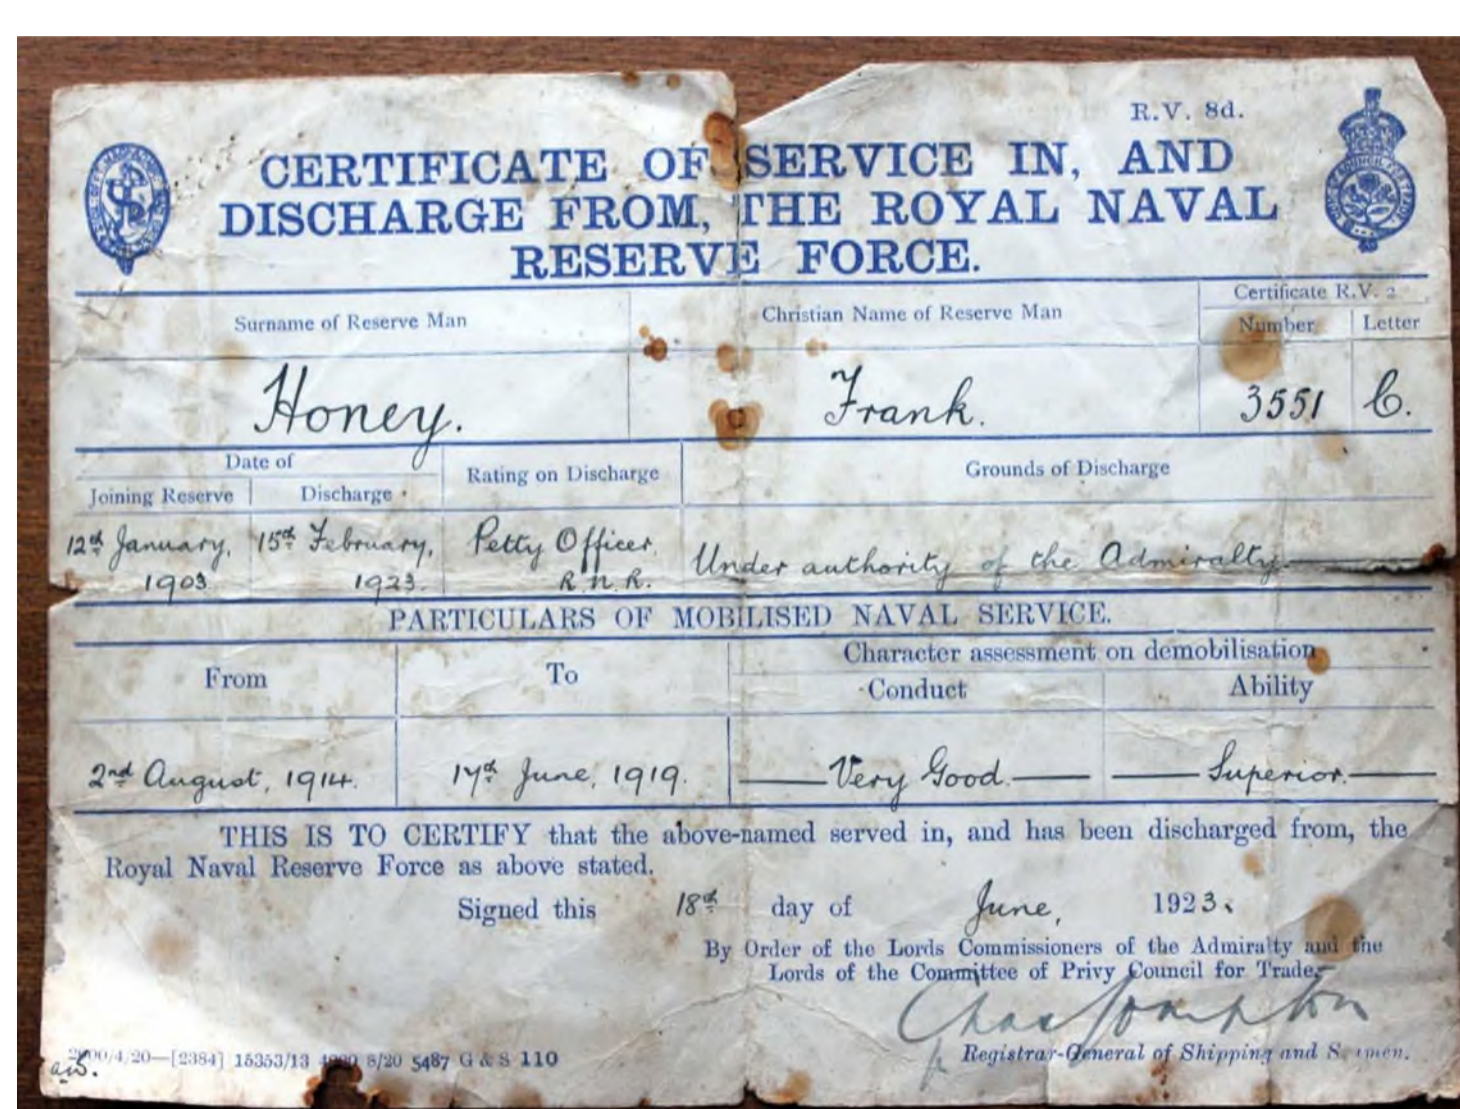 R.V. 8d.
CERTIFICATE OF SERVICE IN, AND
DISCHARGE FROM, THE ROYAL NAVAL
RESERVE FORCE.
Surname of Reserve Man
Christian Name of Reserve Man
Certificate R.V. 2
Number
Letter
Honey.
Frank.
3551
C.
Date of
Joining Reserve
Discharge
Rating on Discharge
Grounds of Discharge
12th January,
1903
15th February,
1923.
Petty Officer,
R.N.R.
Under authority of the Admiralty.
PARTICULARS OF MOBILISED NAVAL SERVICE.
From
To
Character assessment on demobilisation
Conduct
Ability
2nd August, 1914.
17th June, 1919.
Very Good.
Superior.
THIS IS TO CERTIFY that the above-named served in, and has been discharged from, the
Royal Naval Reserve Force as above stated.
Signed this 18th day of June, 1923.
By Order of the Lords Commissioners of the Admiralty and the
Lords of the Committee of Privy Council for Trade,
Registrar-General of Shipping and Seamen.
/4/20—[2384] 15353/13 8/20 5487 G & S 110